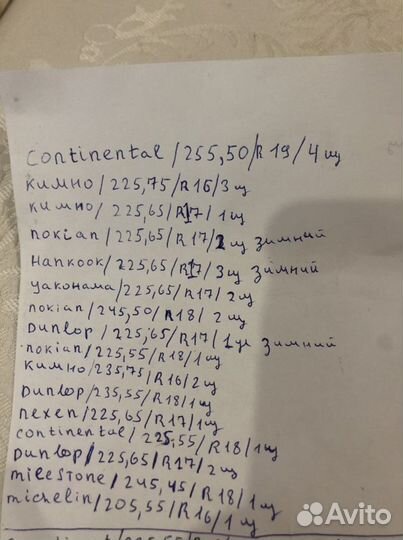 continental/255,50/R19/4 щ
кимно/225,75/R16/3щ
кимно/ 225,65/R17/ 1щ
nokian/225,65/R17/2щ зимний
Hankook/225,65/R17/3щ зимний
yакохама/225,65/R17/ 2щ
nokian/245,50/R18/ 2щ
Dunlop/225,65/R17/1щ зимний
nokian/225,55/R18/1щ
кимно/235,75/R16/2щ
Dunlop/235,55/R18/1щ
nexen/225,65/R17/1щ
continental/ 225,55/R18/1щ
Dunlop/225,65/R17/2щ
milestone/245,45/R18/1щ
michelin/205,55/R16/1щ
Avito